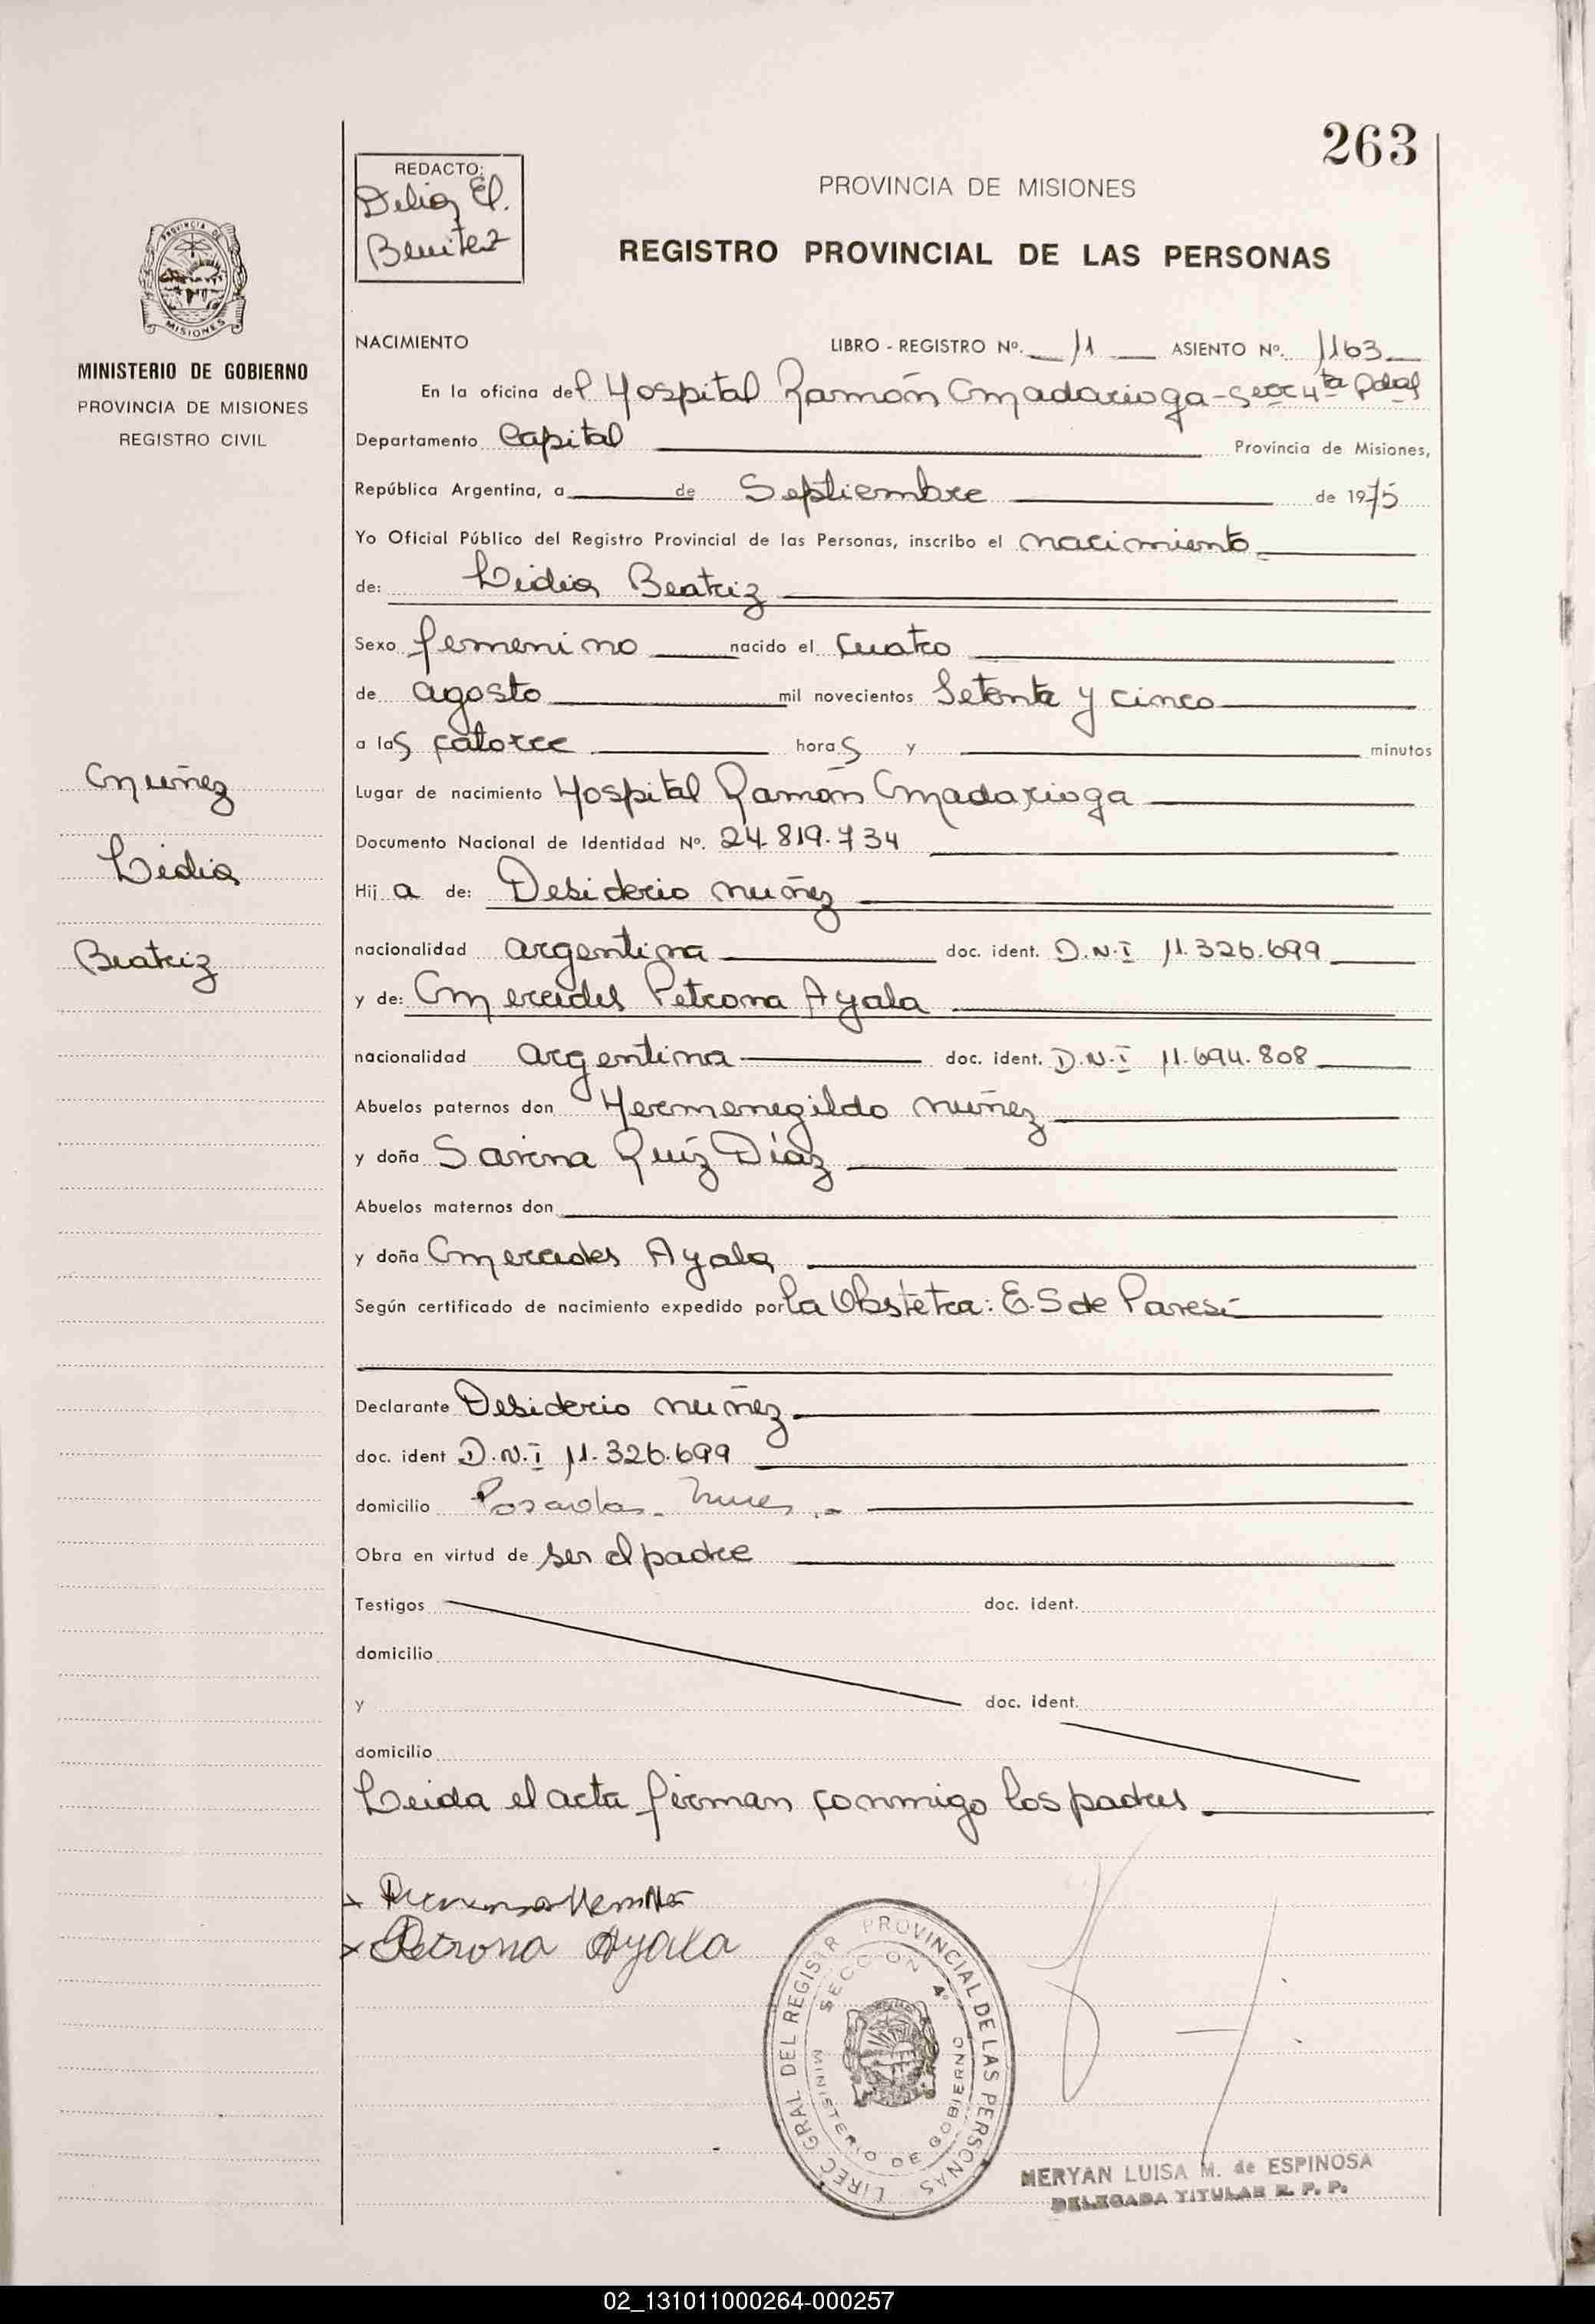 263
REDACTO:
Delia E.
Benitez
PROVINCIA DE MISIONES
REGISTRO PROVINCIAL DE LAS PERSONAS
PROVINCIA DE
MISIONES
MINISTERIO DE GOBIERNO
PROVINCIA DE MISIONES
REGISTRO CIVIL
NACIMIENTO LIBRO - REGISTRO Nº. 11 ASIENTO Nº. 1163
En la oficina del Hospital Ramón Madariaga - Secc 4ta Pdas
Departamento Capital Provincia de Misiones,
República Argentina, a de Septiembre de 1975
Yo Oficial Público del Registro Provincial de las Personas, inscribo el nacimiento
de: Lidia Beatriz
Sexo femenino nacido el cuatro
de agosto mil novecientos setenta y cinco
a las catorce horas y minutos
Lugar de nacimiento Hospital Ramón Madariaga
Documento Nacional de Identidad Nº. 24.819.734
Hija de: Desiderio Nuñez
nacionalidad argentina doc. ident. D.N.I 11.326.699
y de: Mercedes Petrona Ayala
nacionalidad argentina doc. ident. D.N.I 11.694.808
Abuelos paternos don Hermenegildo Nuñez
y doña Savina Ruíz Díaz
Abuelos maternos don
y doña Mercedes Ayala
Según certificado de nacimiento expedido por la Obstetra: E. S de Paresi
Declarante Desiderio Nuñez
doc. ident D.N.I 11.326.699
domicilio Posadas - Mnes
Obra en virtud de ser el padre
Testigos doc. ident.
domicilio
y doc. ident.
domicilio
Leida el acta firman conmigo los padres
Nuñez
Lidia
Beatriz
Petrona Ayala
DIREC GRAL DEL REGISTR PROVINCIAL DE LAS PERSONAS
SECCION 4º
MINISTERIO DE GOBIERNO
MERYAN LUISA M. de ESPINOSA
DELEGADA TITULAR R. P. P.
02_131011000264-000257